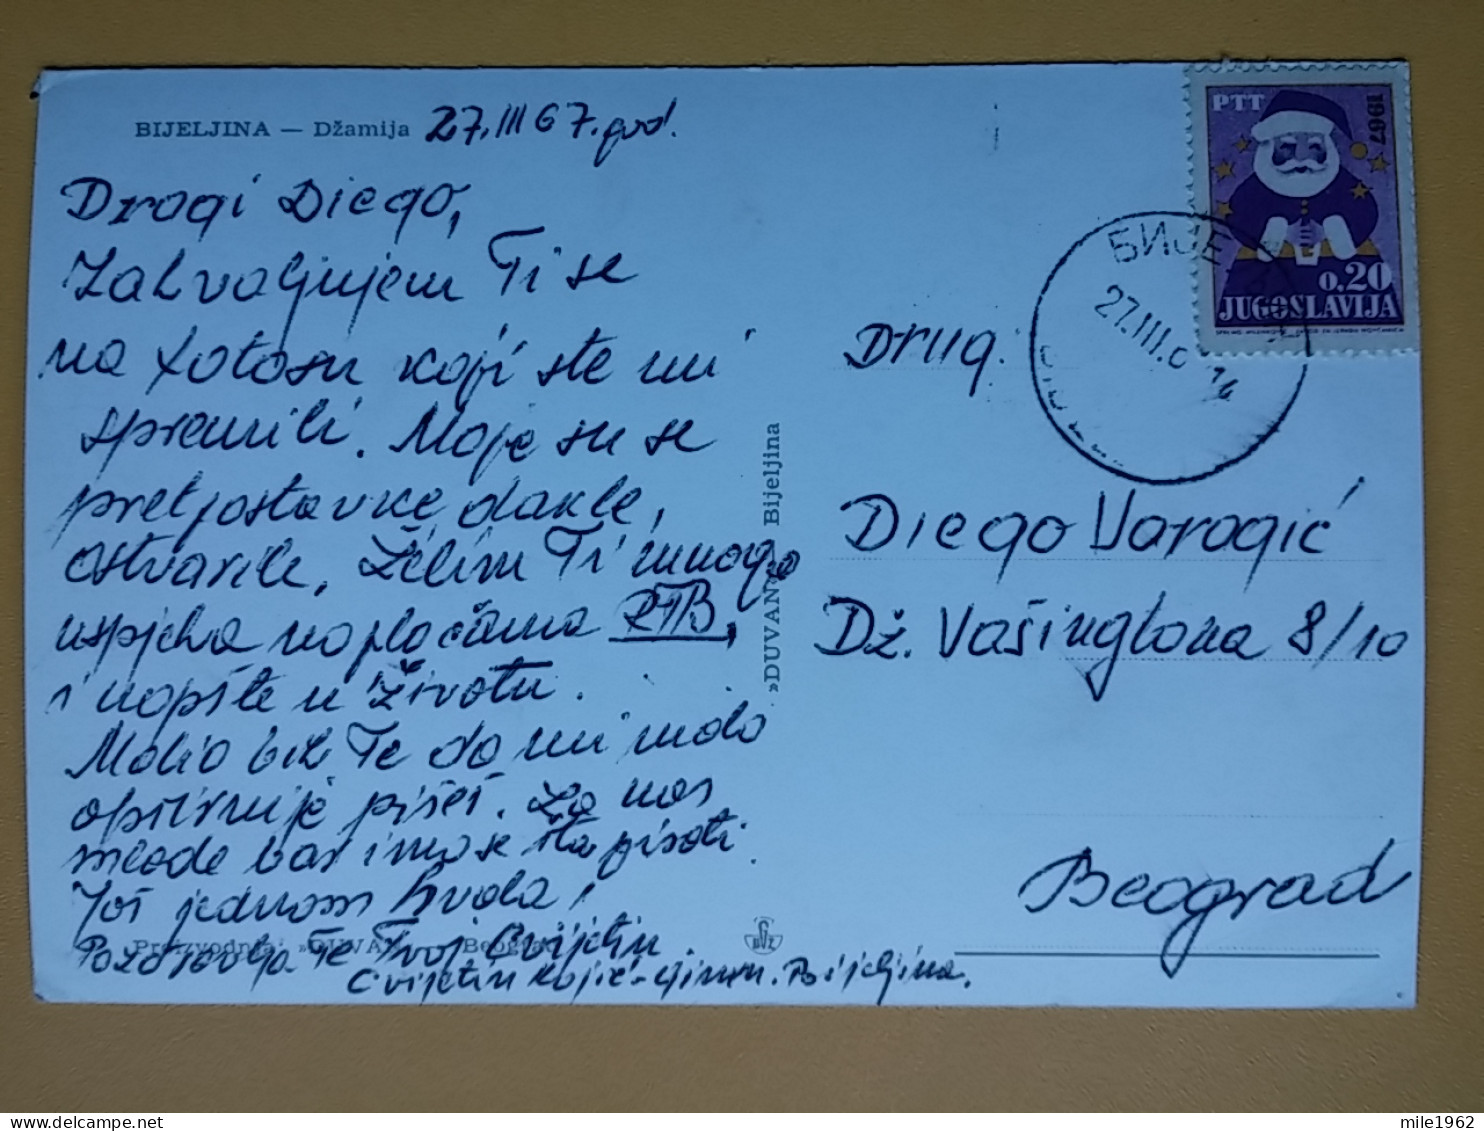 BIJELJINA — Džamija 27.III 67. god.
Dragi Diego,
Zahvaljujem Ti se
na fotosu koji ste mi
spremili. Moje su se
pretpostavke dakle,
ostvarile. Želim Ti mnogo
uspjeha na pločama RTB,
i uopšte u životu.
Molio bih Te da mi malo
opširnije pišeš. Za nas
mlade bar ima se šta pisati.
Još jednom hvala,
Pozdravlja Te Tvoj Cvijetin
Cvijetin Kojić - gimn. Bijeljina.
Proizvodnja: »DUVAN Beograd
»DUVAN Bijeljina
PTT 1967
0.20
JUGOSLAVIJA
БИЈЕ
27.III. 14
Drug.
Diego Varagić
Dž. Vašingtona 8/10
Beograd
mile1962